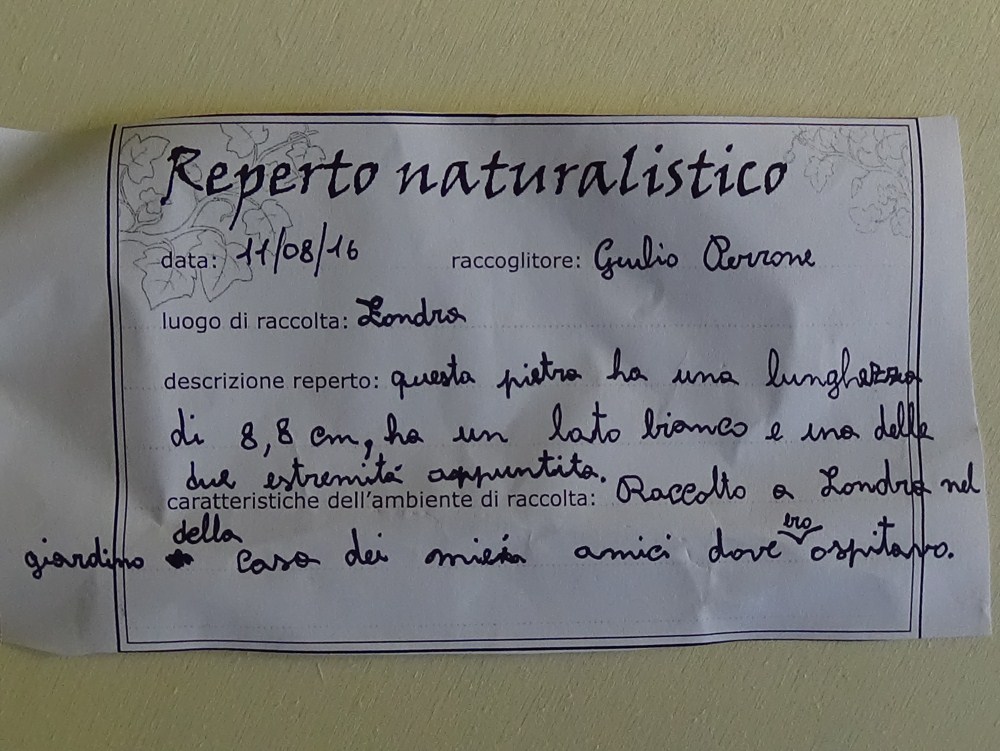 Reperto naturalistico
data: 11/08/16 raccoglitore: Giulio Perrone
luogo di raccolta: Londra
descrizione reperto: questa pietra ha una lunghezza
di 8,8 cm, ha un lato bianco e una delle
due estremità appuntita.
caratteristiche dell'ambiente di raccolta: Raccolto a Londra nel
giardino della casa dei miei amici dove ero ospitavo.